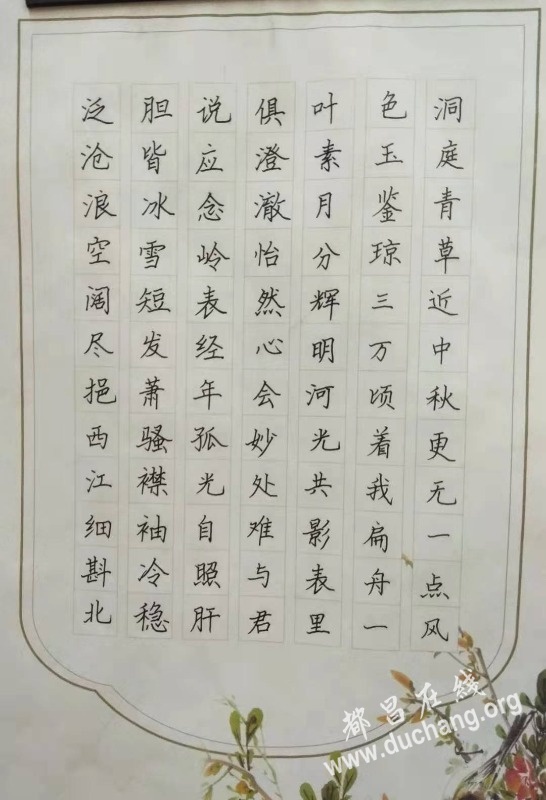 洞庭青草近中秋更无一点风
色玉鉴琼三万顷着我扁舟一
叶素月分辉明河光共影表里
俱澄澈怡然心会妙处难与君
说应念岭表经年孤光自照肝
胆皆冰雪短发萧骚襟袖冷稳
泛沧浪空阔尽挹西江细斟北
都昌在线
www.duchang.org